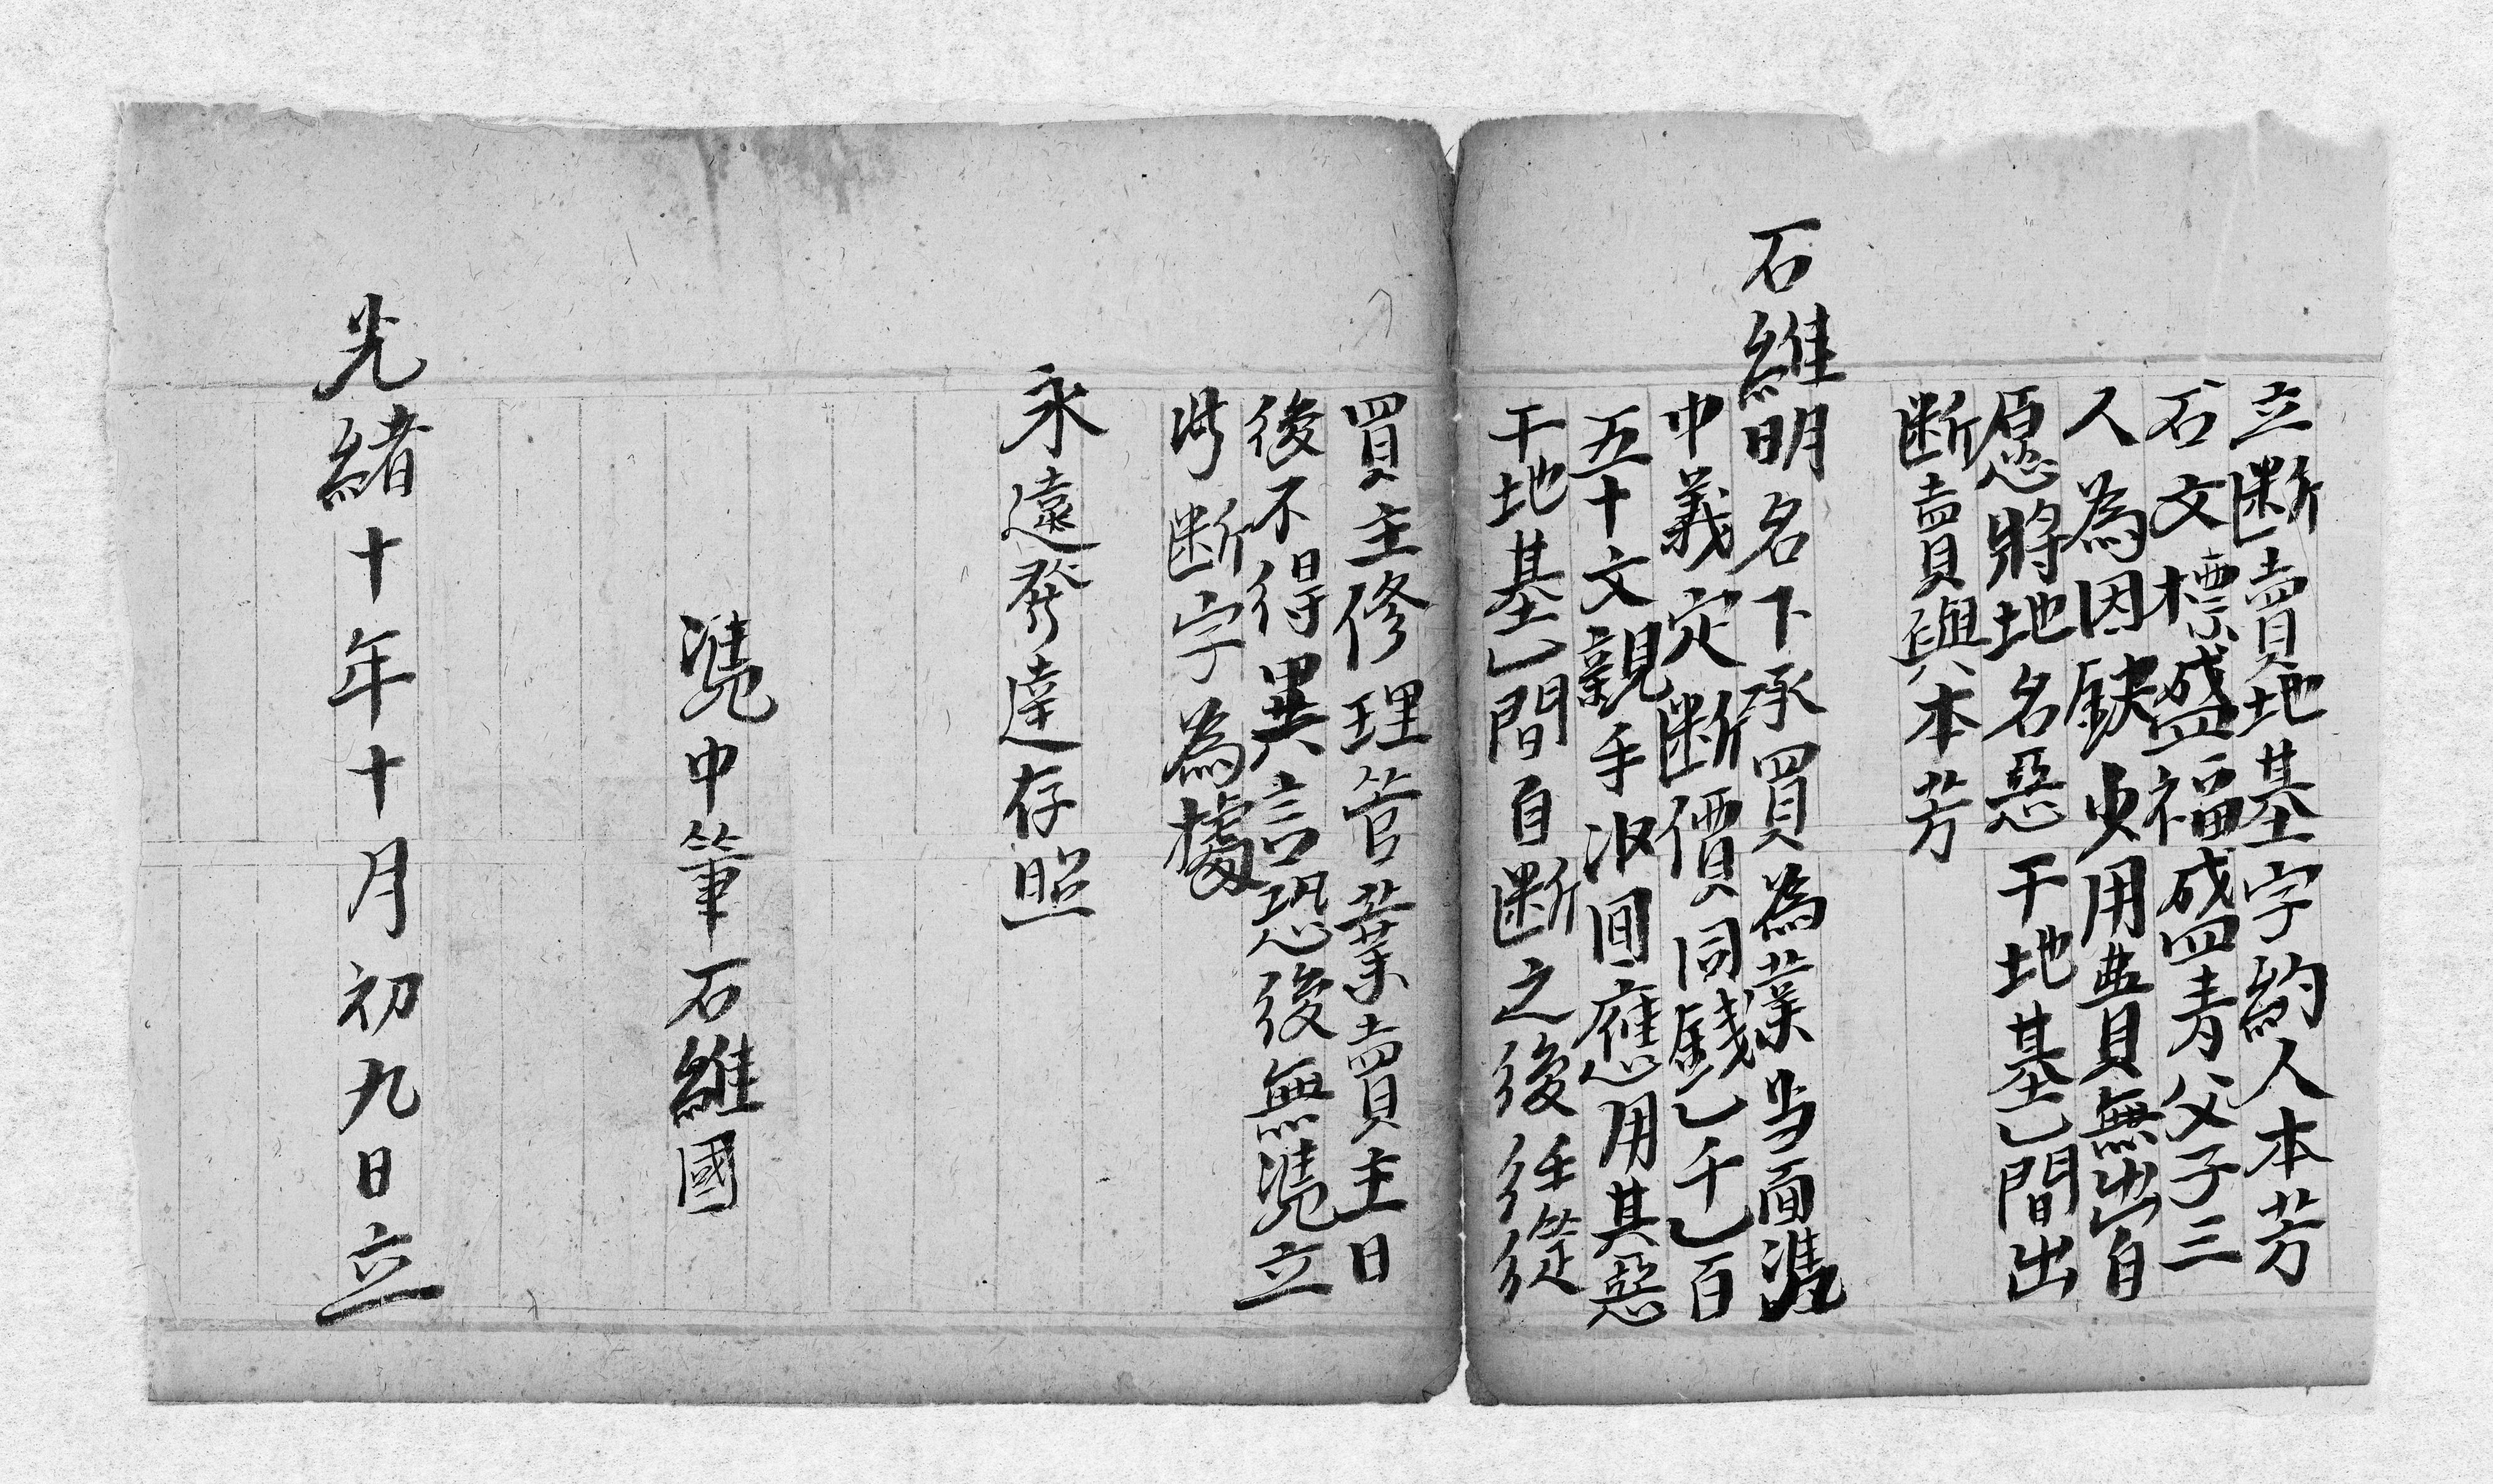 立断賣地基字約人本芳
石文標盛福盛四青父子三
人為因缺少用費無出自
愿將地名惡干地基乙間出
断賣與本芳
石維明名下承買為業当面凴
中義定断價同錢乙千乙百
五十文親手收囬應用其惡
干地基乙間自断之後任從
買主修理管業賣主日
後不得異言恐後無凴立
此断字為據
永遠發達存照
凴中筆石維國
光緒十年十月初九日立